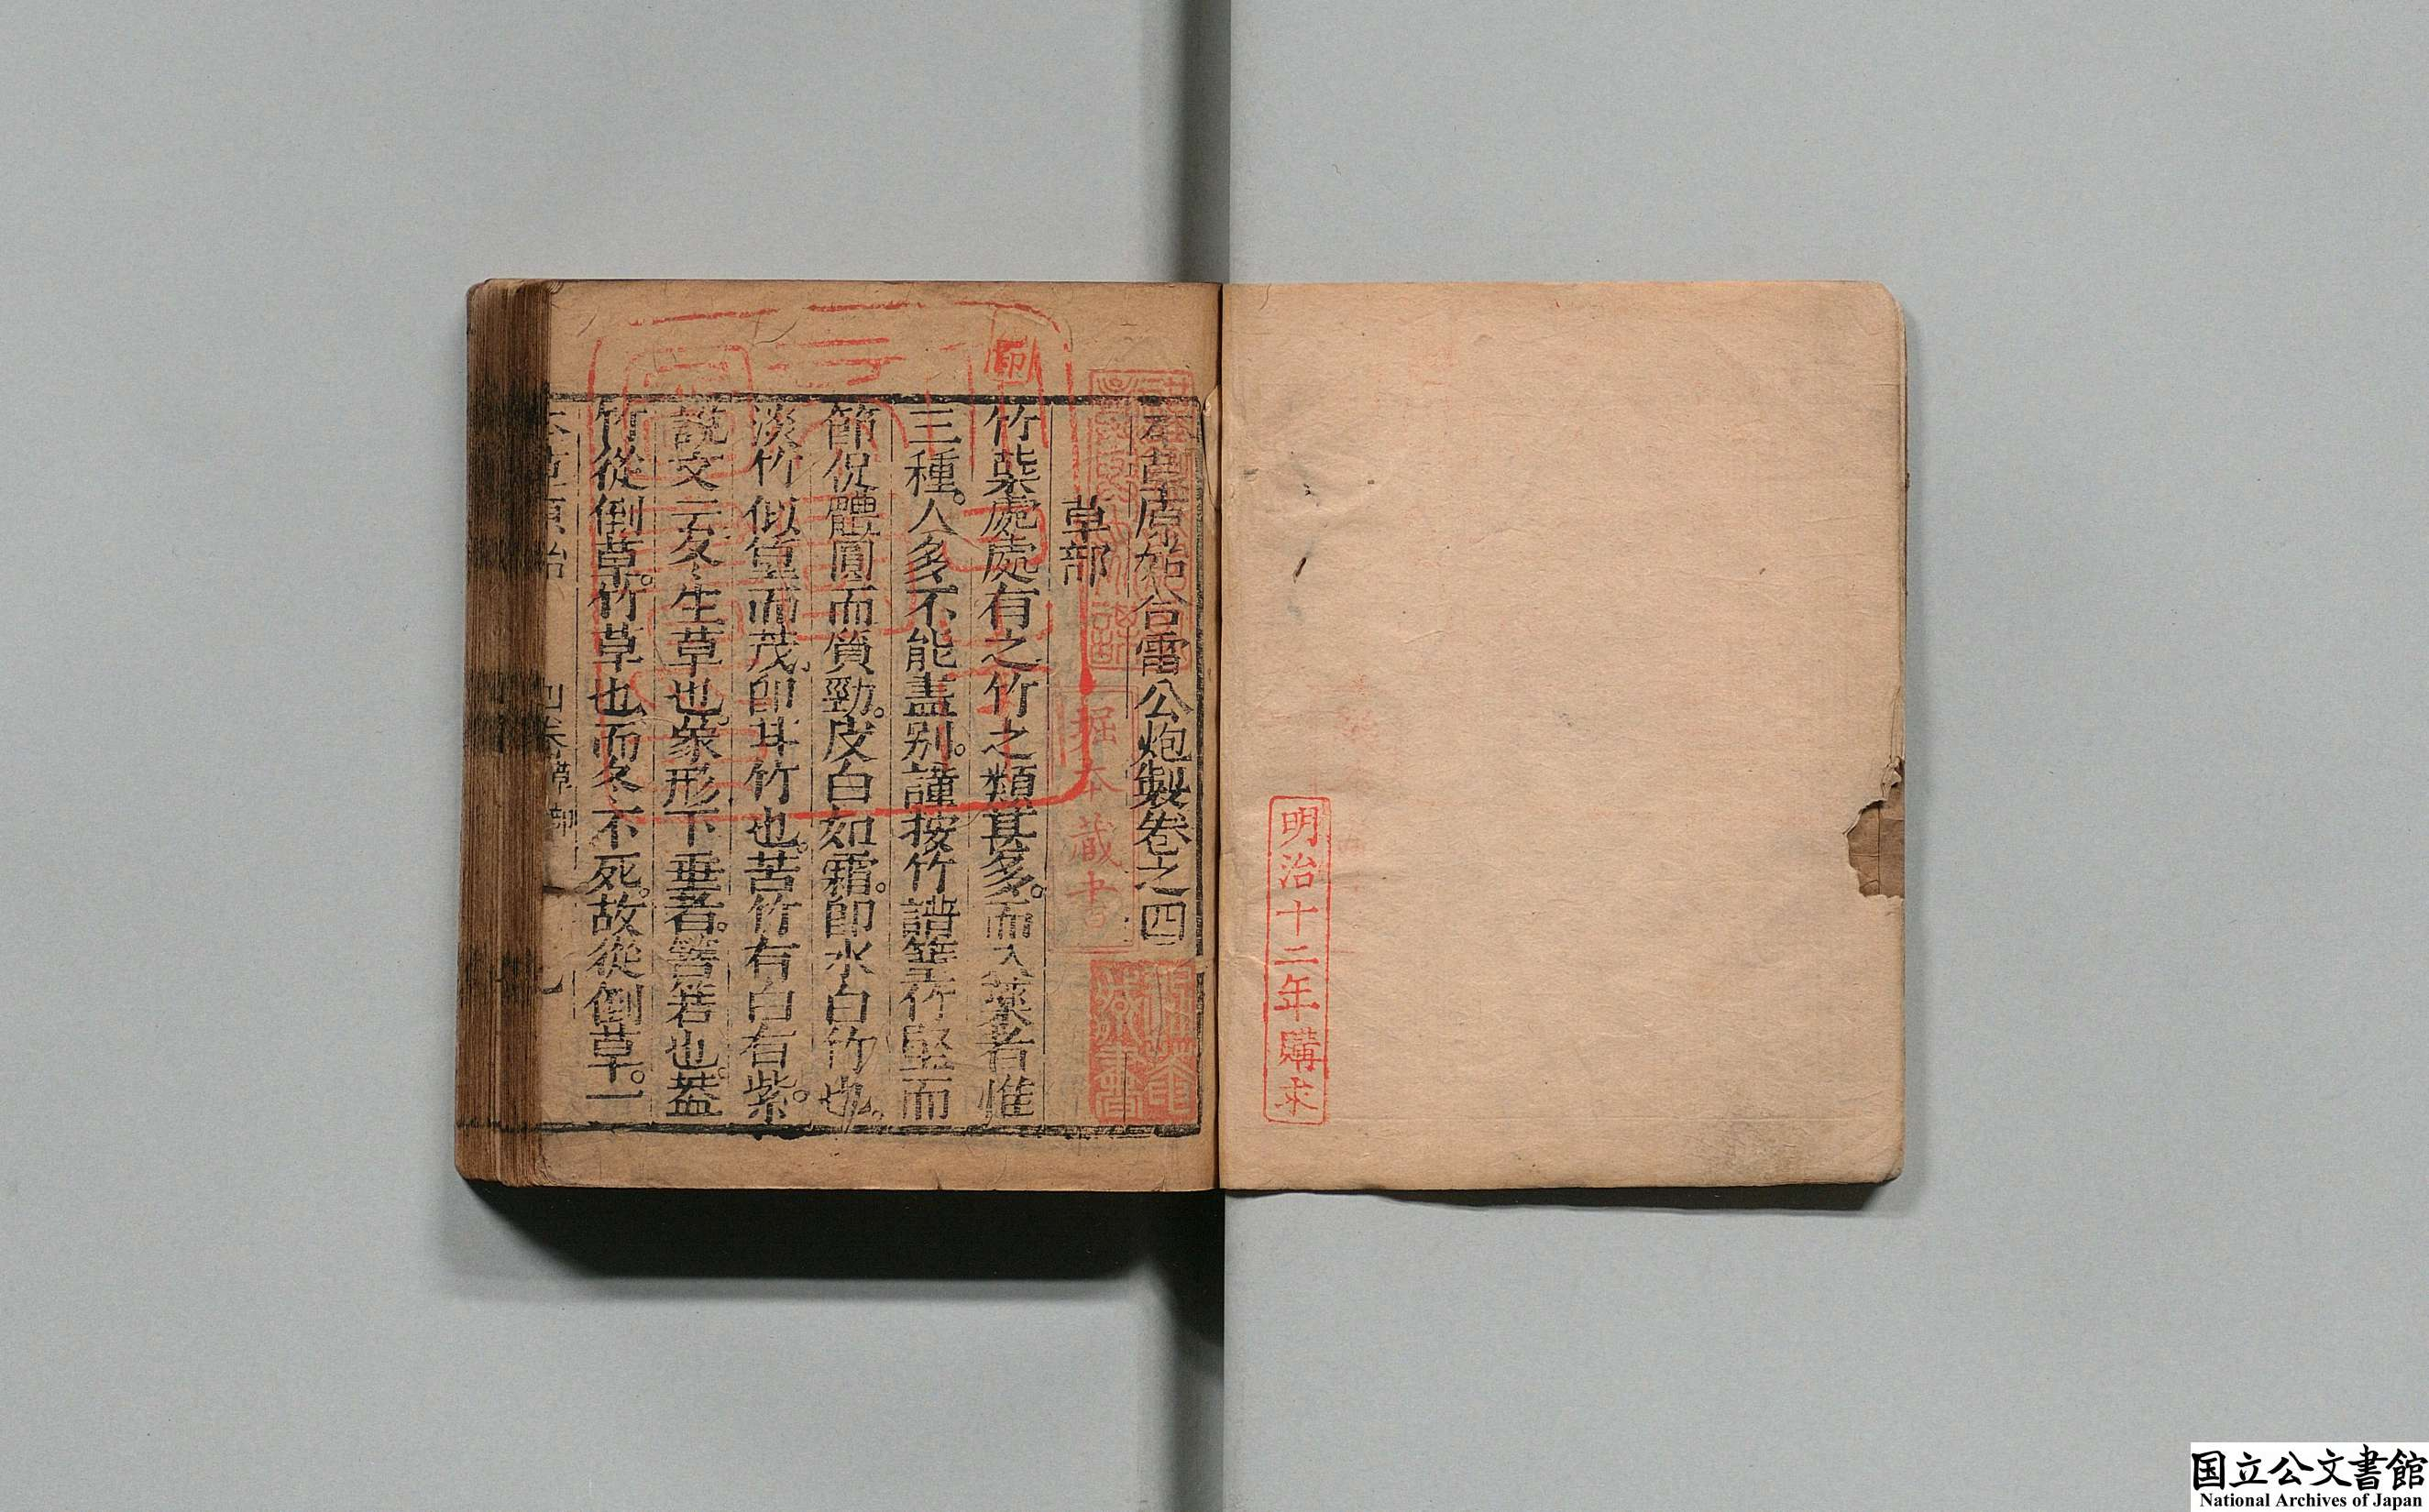 明治十二年購求
本草原始合雷公炮製卷之四
草部
竹葉處處有之竹之類甚多。而入藥者惟
三種。人多不能盡别。謹按竹譜䈽竹堅而
節促體圓而質勁。皮白如霜。卽水白竹也。
淡竹似篁而茂。卽甘竹也。苦竹有白有紫。
說文云冬生草也。象形下垂者。箁箬也。葢
竹從倒草。竹草也而冬不死。故從倒草。一
堀本蔵書
国立公文書館
National Archives of Japan